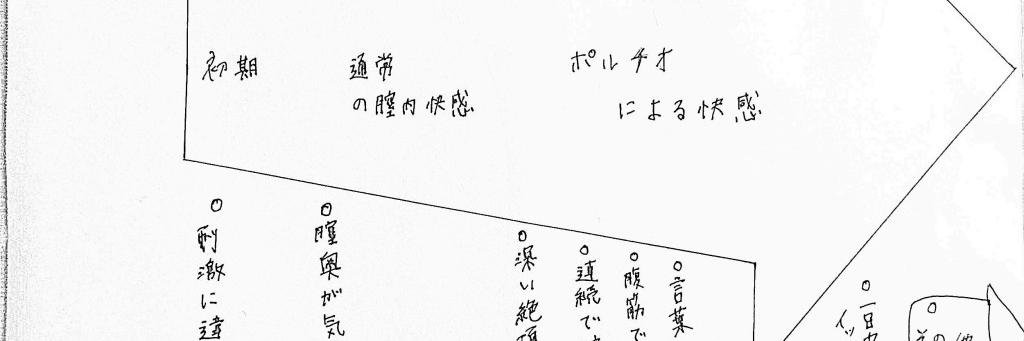 初期
通常
の膣内快感
ポルチオ
による快感
刺激に違
膣奥が気
深い絶頂
連続で
腹筋で
言葉
一日中
イッ
その他